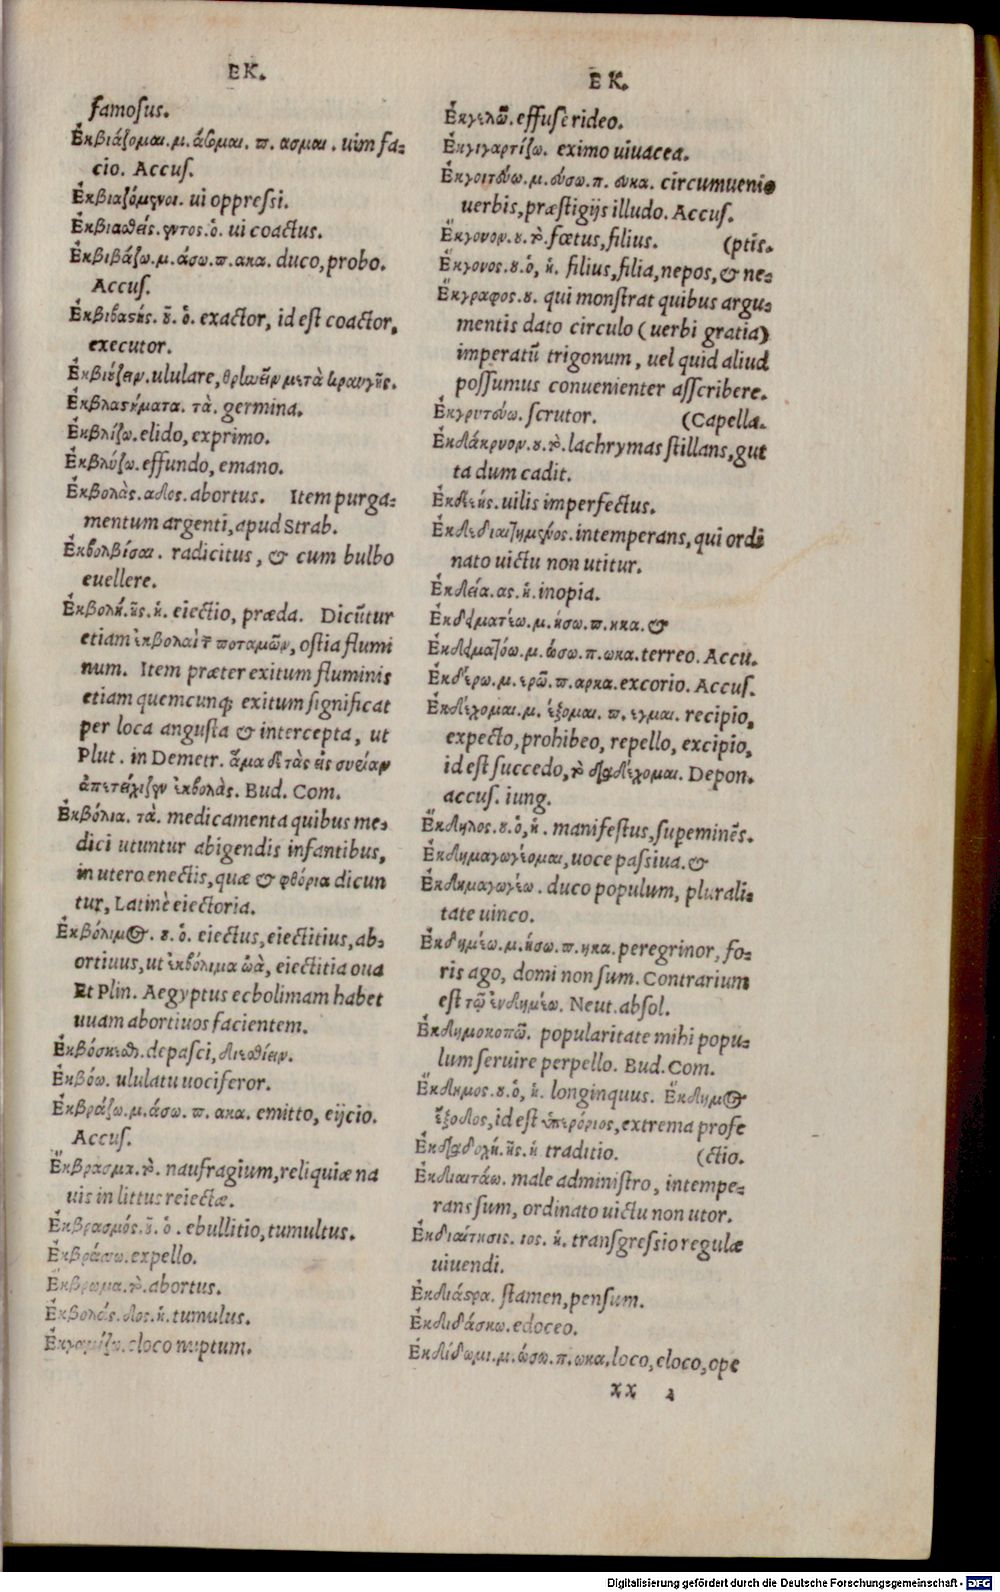 EK.
famosus.
Ἐκβιάζομαι. μ. άσομαι. π. ασμαι. uim fa-
cio. Accus.
Ἐκβιαζόμενοι. ui oppressi.
Ἐκβιαθείς. έντος. ὁ. ui coactus.
Ἐκβιβάζω. μ. άσω. π. ακα. duco, probo.
Accus.
Ἐκβιβαστής. οῦ. ὁ. exactor, id est coactor,
executor.
Ἐκβιύζειν. ululare, θρηνεῖν μετὰ κραυγῆς.
Ἐκβλαστήματα. τὰ. germina.
Ἐκβλίζω. elido, exprimo.
Ἐκβλύζω. effundo, emano.
Ἐκβολὰς. αδος. abortus. Item purga-
mentum argenti, apud Strab.
Ἐκβολβίσαι. radicitus, & cum bulbo
euellere.
Ἐκβολή. ῆς. ἡ. eiectio, præda. Dicūtur
etiam ἐκβολαὶ τῶν ποταμῶν, ostia flumi
num. Item præter exitum fluminis
etiam quemcunq; exitum significat
per loca angusta & intercepta, ut
Plut. in Demetr. ἅμα δὲ τὰς εἰς συείαν
ἀπετείχιζεν ἐκβολὰς. Bud. Com.
Ἐκβόλια. τὰ. medicamenta quibus me-
dici utuntur abigendis infantibus,
in utero enectis, quæ & φθόρια dicun
tur, Latinè eiectoria.
Ἐκβόλιμος. ου. ὁ. eiectus, eiectitius, ab-
ortiuus, ut ἐκβόλιμα ὠὰ, eiectitia oua
Et Plin. Aegyptus ecbolimam habet
uuam abortiuos facientem.
Ἐκβόσκεσθαι. depasci, διεσθίειν.
Ἐκβόω. ululatu uociferor.
Ἐκβράζω. μ. άσω. π. ακα. emitto, eijcio.
Accus.
Ἔκβρασμα. τὸ. naufragium, reliquiæ na
uis in littus reiectæ.
Ἐκβρασμός. οῦ. ὁ. ebullitio, tumultus.
Ἐκβράσσω. expello.
Ἔκβρωμα. τὸ. abortus.
Ἐκβολάς. δος. ἡ. tumulus.
Ἐκγαμίζω. eloco nuptum.
EK.
Ἐκγελῶ. effusè rideo.
Ἐκγιγαρτίζω. eximo uiuacea.
Ἐκγοιτεύω. μ. εύσω. π. ευκα. circumuenio
uerbis, præstigijs illudo. Accus.
Ἔκγονον. ου. τὸ. fœtus, filius. (ptis.
Ἔκγονος. ου. ὁ, ἡ. filius, filia, nepos, & ne-
Ἔκγραφος. ου. qui monstrat quibus argu-
mentis dato circulo (uerbi gratia)
imperatū trigonum, uel quid aliud
possumus conuenienter asscribere.
Ἐκγρυτεύω. scrutor. (Capella.
Ἐκδάκρυον. ου. τὸ. lachrymas stillans, gut
ta dum cadit.
Ἐκδεής. uilis imperfectus.
Ἐκδεδιαιτημένος. intemperans, qui ordi
nato uictu non utitur.
Ἐκδεία. ας. ἡ. inopia.
Ἐκδειματέω. μ. ήσω. π. ηκα. &
Ἐκδειματόω. μ. ώσω. π. ωκα. terreo. Accu.
Ἐκδέρω. μ. ερῶ. π. αρκα. excorio. Accus.
Ἐκδέχομαι. μ. έξομαι. π. εγμαι. recipio,
expecto, prohibeo, repello, excipio,
id est succedo, τὸ διαδέχομαι. Depon.
accus. iung.
Ἔκδηλος. ου. ὁ, ἡ. manifestus, supeminēs.
Ἐκδημαγωγέομαι, uoce passiua. &
Ἐκδημαγωγέω. duco populum, plurali-
tate uinco.
Ἐκδημέω. μ. ήσω. π. ηκα. peregrinor, fo-
ris ago, domi non sum. Contrarium
est τῷ ἐνδημέω. Neut. absol.
Ἐκδημοκοπῶ. popularitate mihi popu-
lum seruire perpello. Bud. Com.
Ἔκδημος. ου. ὁ, ἡ. longinquus. Ἔκδημος
ἔξοδος, id est ὑπερόριος, extrema profe
Ἐκδιαδοχή. ῆς. ἡ traditio. (ctio.
Ἐκδιαιτάω. male administro, intempe-
rans sum, ordinato uictu non utor.
Ἐκδιαίτησις. ιος. ἡ. transgressio regulæ
uiuendi.
Ἐκδιάστρα. stamen, pensum.
Ἐκδιδάσκω. edoceo.
Ἐκδίδωμι. μ. ώσω. π. ωκα. loco, eloco, ope
xx 2
Digitalisierung gefördert durch die Deutsche Forschungsgemeinschaft - DFG